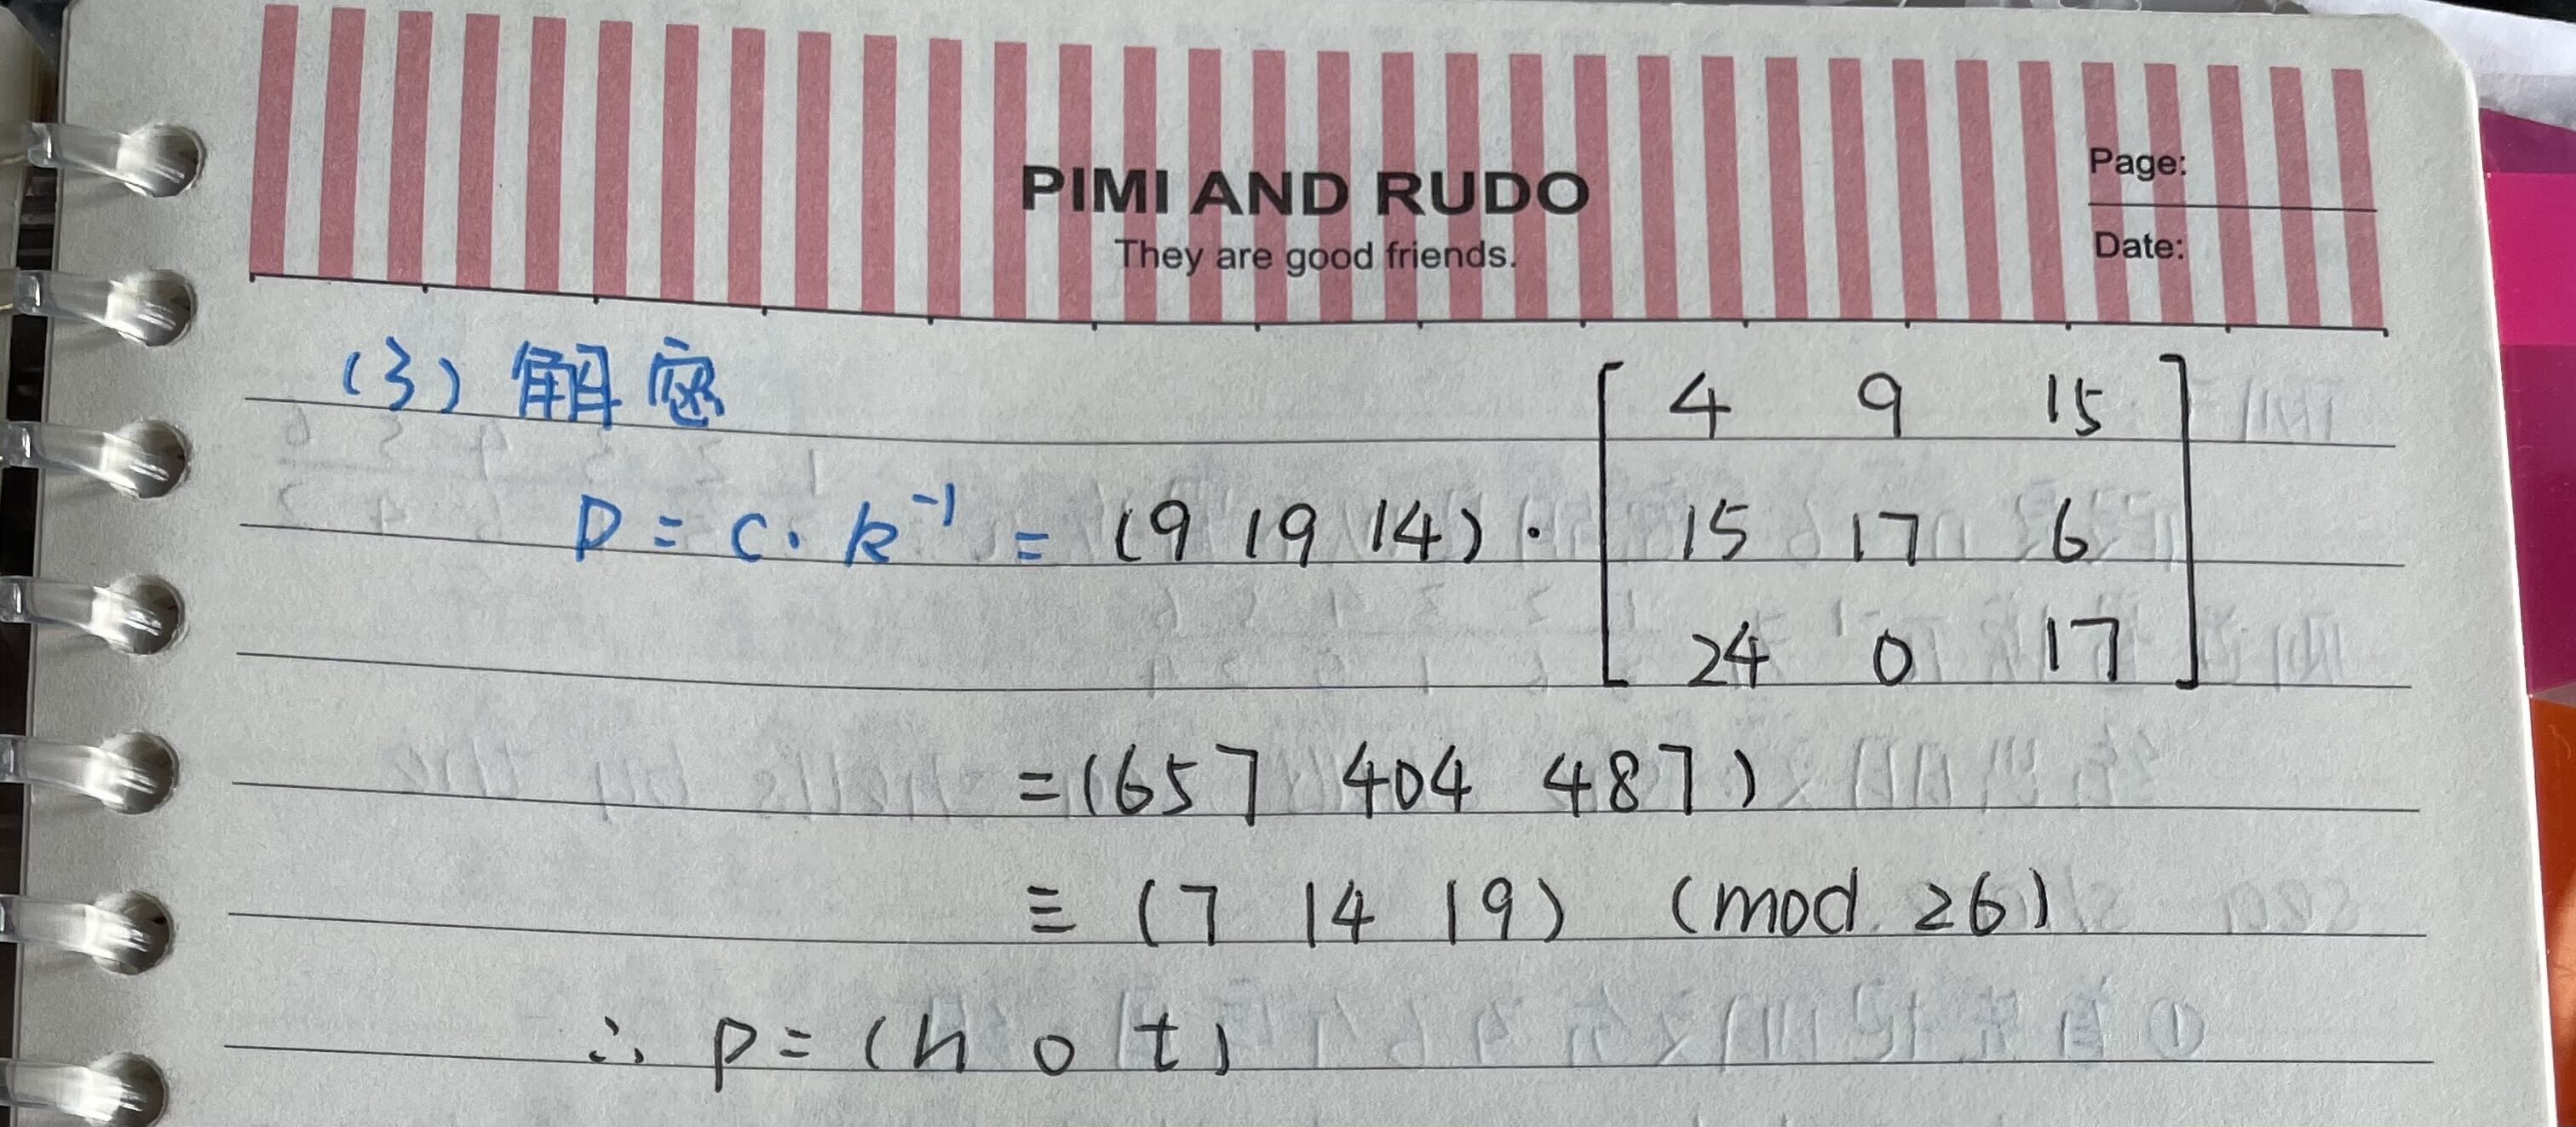 PIMI AND RUDO
They are good friends.
Page:
Date:
(3) 解密
P = C · k⁻¹ = (9 19 14) · [ 4 9 15
15 17 6
24 0 17 ]
= (657 404 487)
≡ (7 14 19) (mod 26)
∴ p = (h o t)